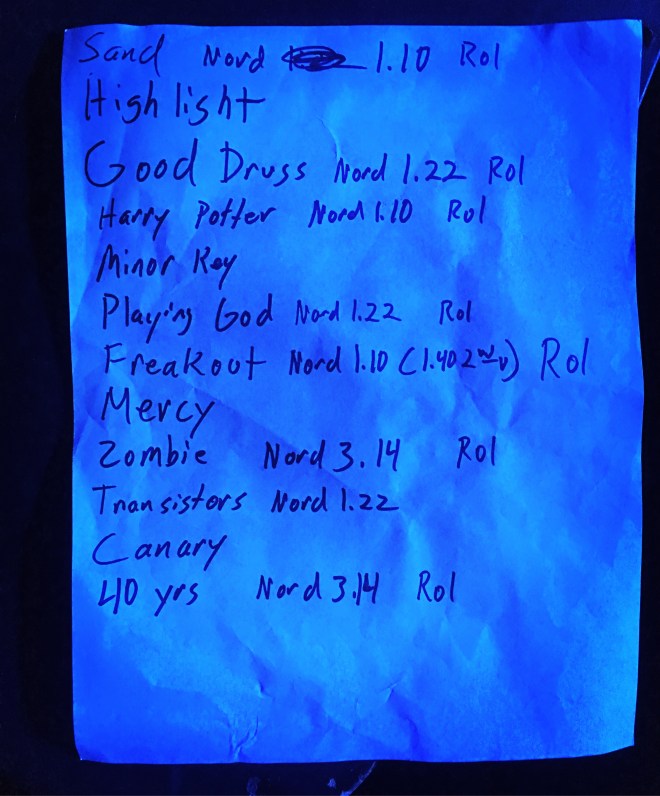 Sand Nord 1.10 Rol
Highlight
Good Drugs Nord 1.22 Rol
Harry Potter Nord 1.10 Rol
Minor Key
Playing God Nord 1.22 Rol
Freakout Nord 1.10 (1.40 2nd v) Rol
Mercy
Zombie Nord 3.14 Rol
Transistors Nord 1.22
Canary
40 yrs Nord 3.14 Rol